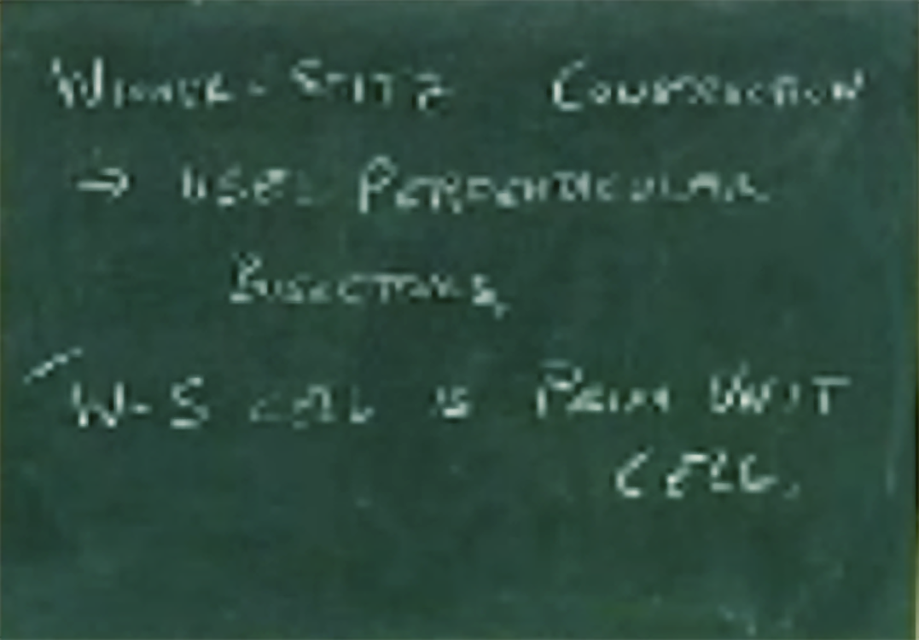 WIGNER-SEITZ CONSTRUCTION
→ USES PERPENDICULAR
BISECTORS,
W-S CELL IS PRIM UNIT
CELL.